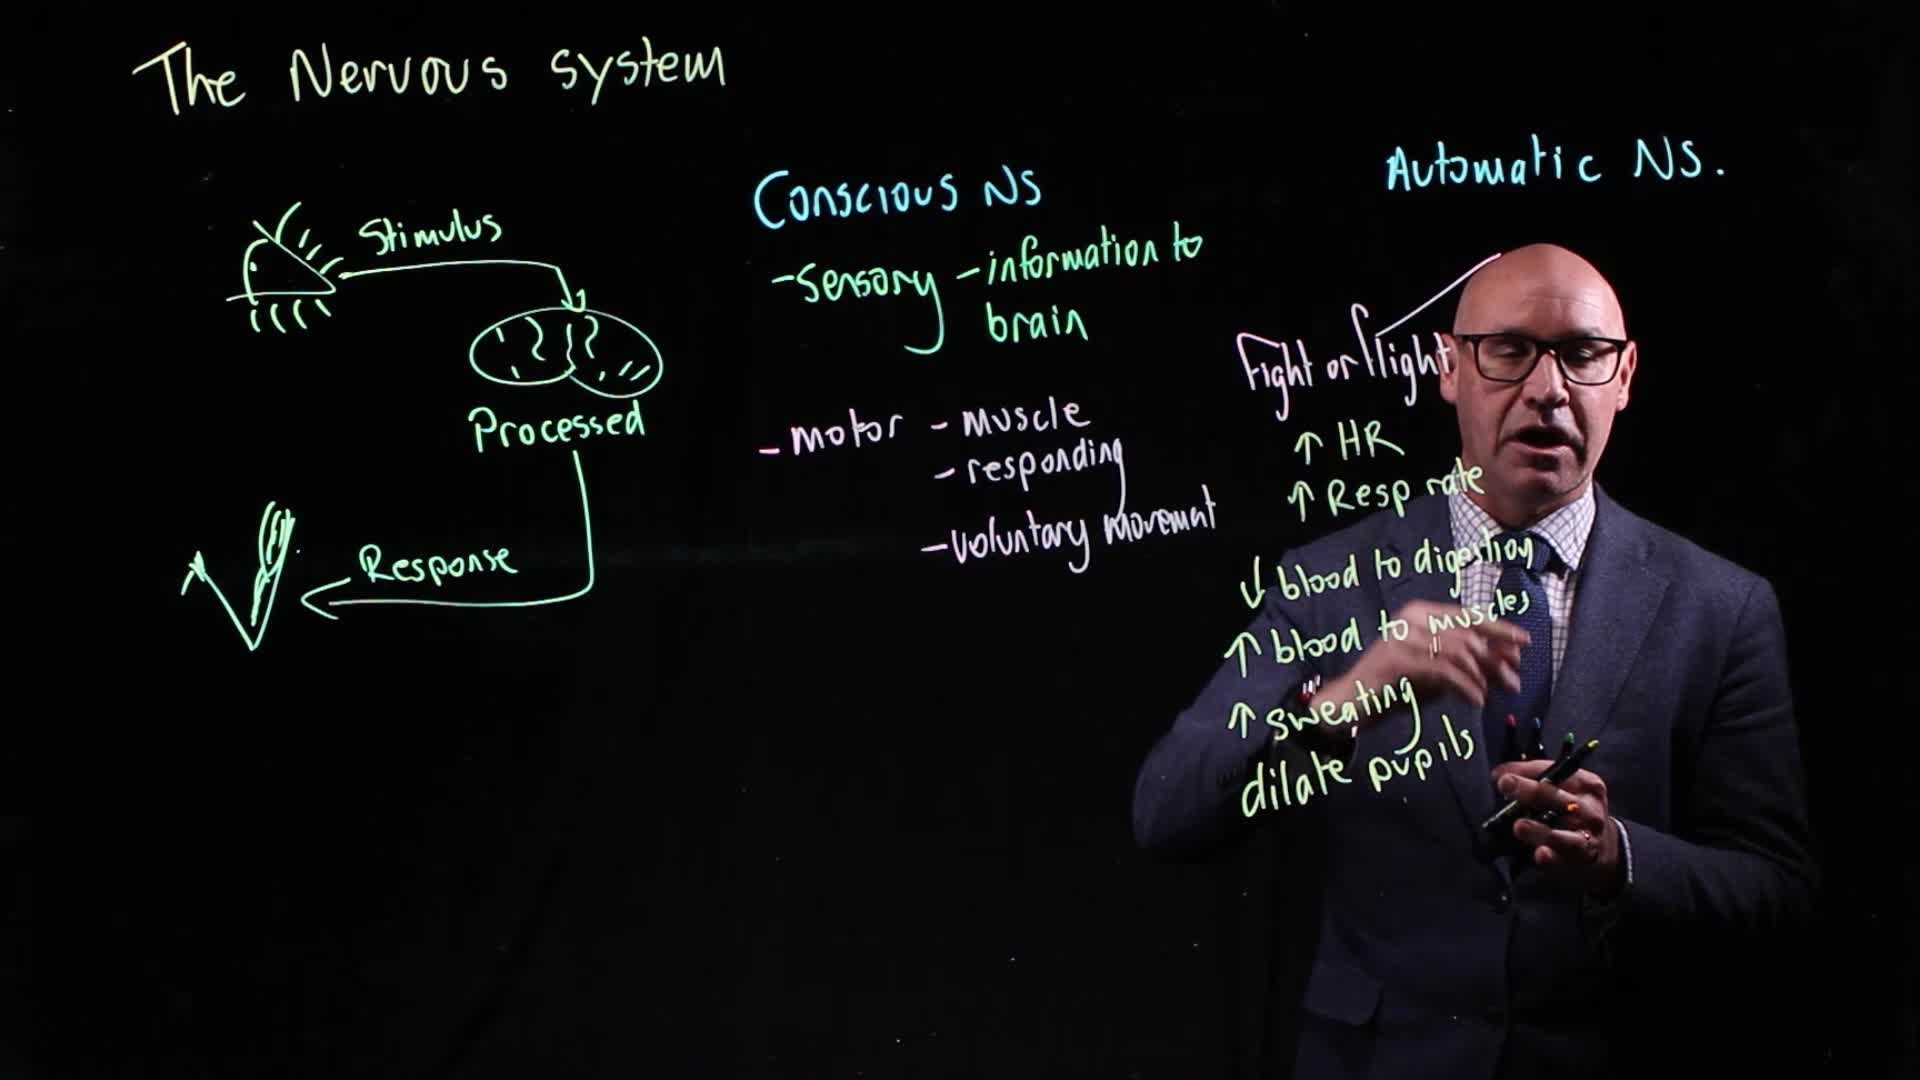 The Nervous system
Stimulus
Processed
Response
Conscious NS
- Sensory - information to
brain
- motor - muscle
- responding
- voluntary movemat
Automatic NS.
Fight or flight
↑ HR
↑ Resp rate
↓ blood to digestion
↑ blood to muscles
↑ sweating
dilate pupils